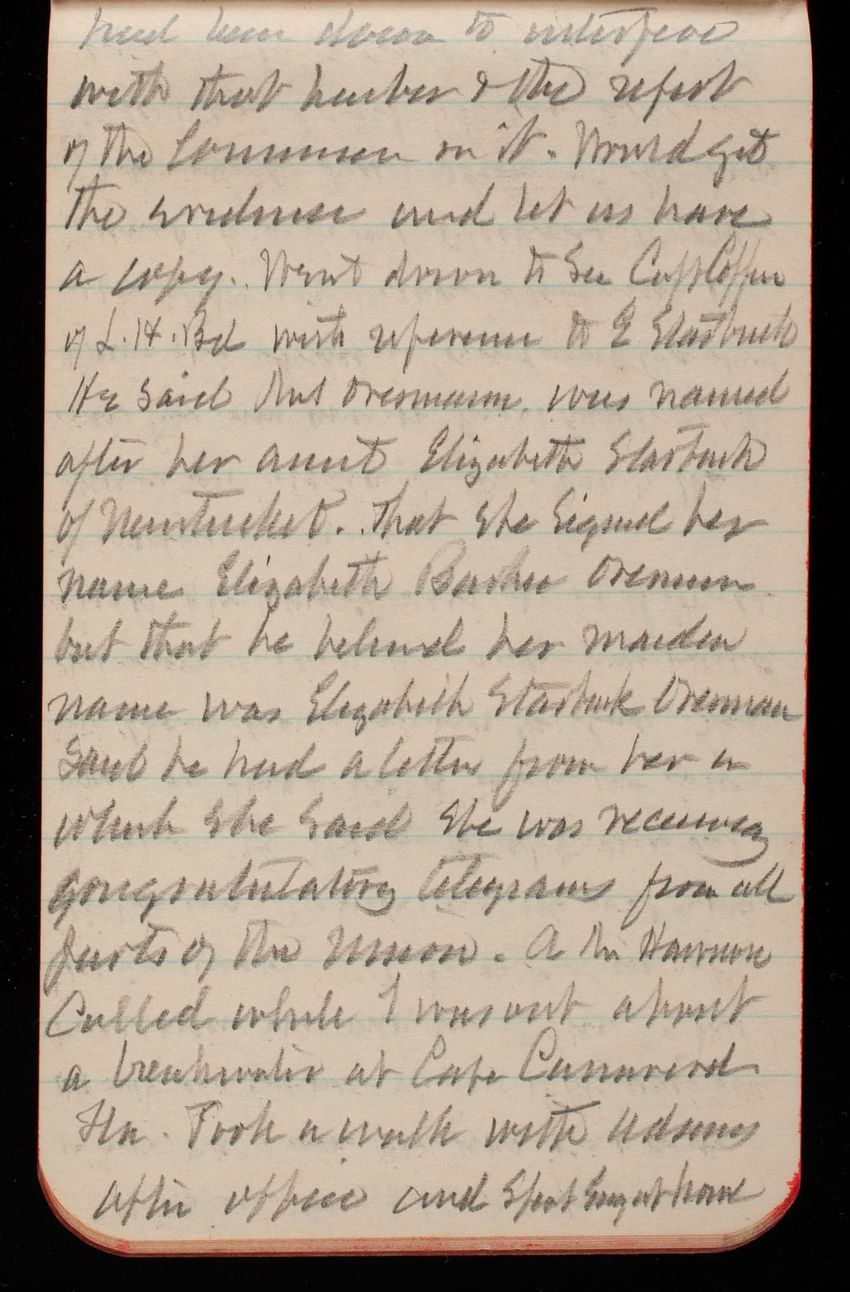 had been down to interfere
with that harbor & the report
of the Commission on it. Would get
the evidence and let us have
a copy. Went down to See Capt Coffin
of L.H.Bd with reference to E Starbuck
He said Mrs was named
after her aunt Elizabeth Starbuck
of Nantucket. That she Signed her
name Elizabeth
but that he believed her maiden
name was Elizabeth Starbuck
Said he had a letter from her in
which She Said She was receiving
congratulatory telegrams from all
parts of the Union. A Mr
Called while I was out about
a breakwater at Cape Canaveral
Fla. Took a walk with Adams
after office and Spent Evg at home